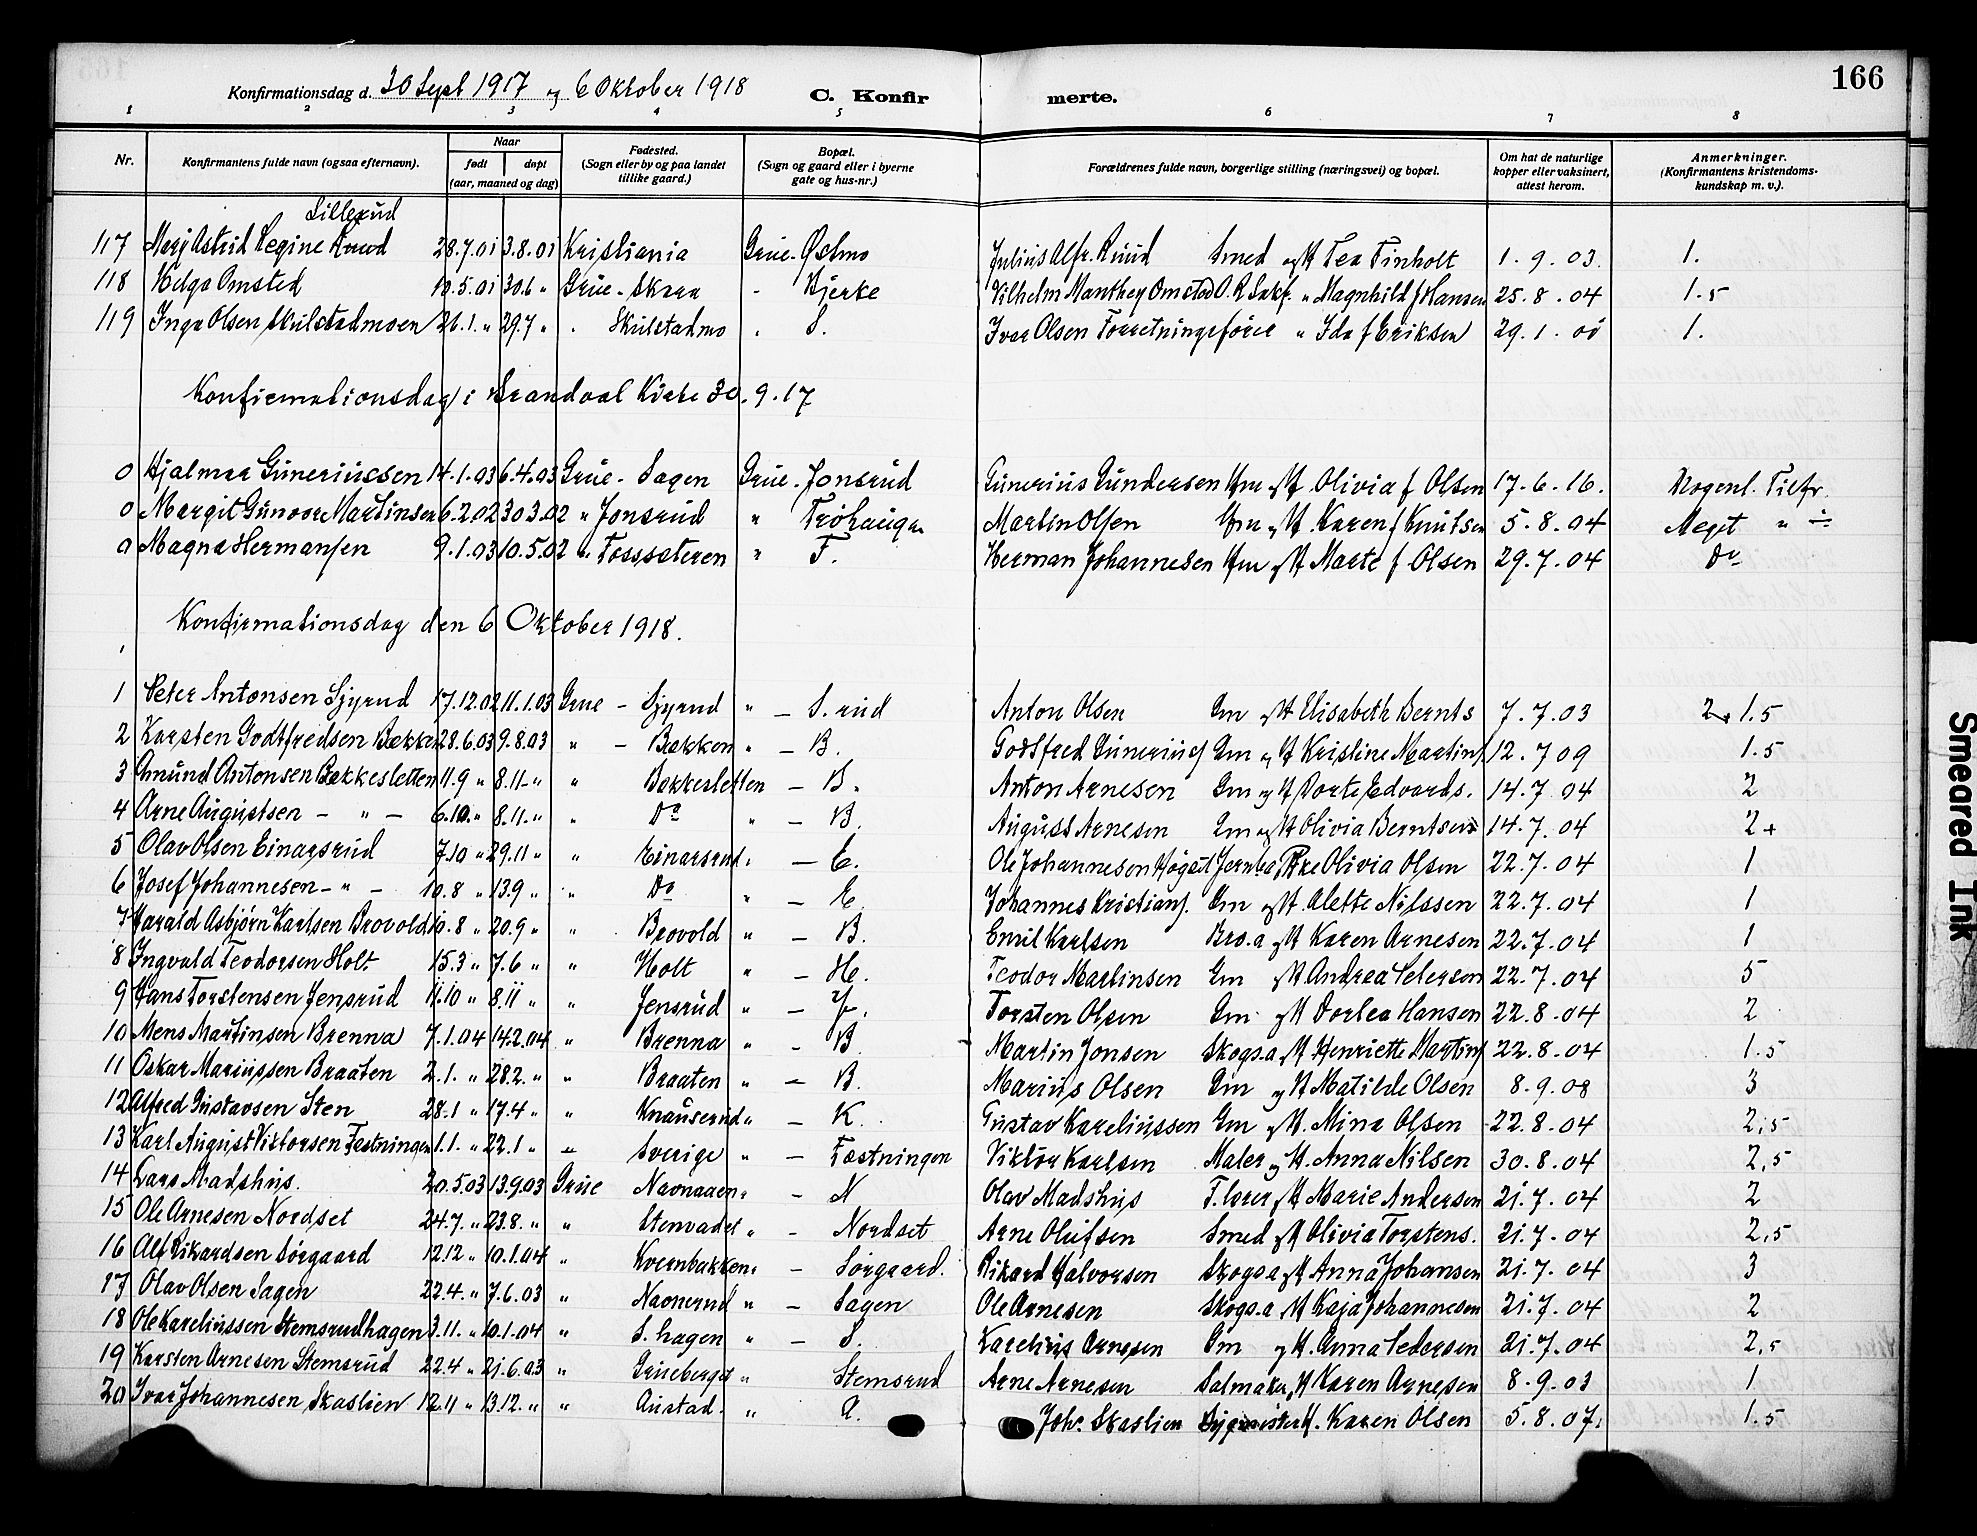 166
Konfirmationsdag d. 30 Sept 1917 og 6 Oktober 1918 C. Konfirmerte.
1 2 3 4 5 6 7 8
Nr. Konfirmantens fulde navn (ogsaa efternavn). Naar født døpt (aar, maaned og dag) Fødested. (Sogn eller by og paa landet tillike gaard.) Bopæl. (Sogn og gaard eller i byerne gate og hus-nr.) Forældrenes fulde navn, borgerlige stilling (næringsvei) og bopæl. Om hat de naturlige kopper eller vaksinert, attest herom. Anmerkninger. (Konfirmantens kristendoms-kundskap m. v.).
Lillerud
117 Marj Astrid Regine Ruud 28.7.01 3.8.01 Kristiania Grue. Østmo Julius Alfr. Ruud Smed og H Tea Finholt 1.9.03. 1.
118 Helga Omsted 10.5.01 30.6 " Grue - Skara - Bjerke Vilhelm Manthey Omsted O.R. Sakf. " Magnhild f Hansen 25.8.04 1.5
119 Inga Olsen Skulstadmoen 26.1. " 29.7 " . Skulstadmo . S. Ivar Olsen Forretningsfører " Ida f Eriksen 29.1.01 1.
Konfirmationsdag i Brandval Kirke 30.9.17
0 Hjalmar Guneriussen 14.1.03 6.4.03 Grue - Sagen Grue. Jonsrud Gunerius Gundersen Hm og H. Olivia f Olsen 17.6.16. Nogenl. Tilfr.
0 Margit Gunvor Martinsen 6.2.02 30.3.02 " Jonsrud " Trøhaugen Martin Olsen Hm og H. Karen f Knutsen 5.8.04 Meget " ÷
0 Magna Hermansen 9.1.03 10.5.02 " Fosssæteren " F. Herman Johannesen Hm og H Marte f Olsen 29.7.04 Do
Konfirmationsdag den 6 Oktober 1918.
1 Peter Antonsen Sjyrud 17.12.02 11.1.03 Grue - Sjyrud " - S.rud Anton Olsen Gm og H Elisabeth Bernts 7.7.03 2+ 1.5
2 Karsten Godtfredsen Bekken 28.6.03 9.8.03 " - Bækken " - B. Godtfred Guneriusf Gm og H Kristine Martinsf 12.7.09 1.5
3 Amund Antonsen Bakkesletten 11.9 " 8.11 - " " Bakkesletten - B. Anton Arnesen Gm og H Dorte Edvards. 14.7.04 2
4 Arne Augustsen - " - 6.10. " 8.11. " " Do " - B. August Arnesen Gm og H Olivia Berntsen 14.7.04 2+
5 Olav Olsen Einarsrud 7.10 " 29.11 " " Einarsrud " - E. Ole Johannesen Høgset Jernba Olivia Olsen 22.7.04 1
6 Josef Johannesen - " - 10.8 " 13.9 " " Do " - E. Johannes Kristiansf. Gm og H. Alette Nilssen 22.7.04 1
7 Harald Asbjørn Karlsen Brovold 10.8 " 20.9 " " Brovold " - B. Emil Karlsen Bro.a og H Karen Arnesen 22.7.04 1
8 Ingvald Teodorsen Holt 15.3 " 7.6 " " Holt " - H. Teodor Martinsen Gm og H Andrea Petersen 22.7.04 5
9 Hans Torstensen Jensrud 11.10 " 8.11 " " Jensrud " - J. Torsten Olsen Gm og H Dortea Hansen 22.8.04 2
10 Mens Martinsen Brenna 7.1.04 14.2.04 " Brenna " - B Martin Jonsen Skogs.a H Henriette Martinsf 22.8.04 1.5
11 Oskar Mariussen Braaten 2.1. " 28.2. " " Braaten " - B. Marius Olsen Gm og H Matilde Olsen 8.9.08 3
12 Alfred Gustavsen Sten 28.1 " 17.4 " " Knauserud " - K. Gustav Kareliussen Gm og H. Mina Olsen 22.8.04 2,5
13 Karl August Viktorsen Fæstningen 1.1. " 22.1 " " Sverige " - Fæstningen Viktor Karlsen Maler og H. Anna Nilsen 30.8.04 2,5
14 Lars Madshus. 20.5.03 13.9.03 Grue Navnaaen " - N Olav Madshus F. lærer og H Marie Andersen 21.7.04 2
15 Ole Arnesen Nordset 24.7. " 23.8. " " Stenvadet " - Nordset Arne Olufsen Smed og H Olivia Torstens. 21.7.04 2,5
16 Alf Rikardsen Sørgaard 12.12 " 10.1.04 " Kvernbakken " - Sørgaard. Rikard Halvorsen Skogs.a og H Anna Johansen 21.7.04 3
17 Olav Olsen Sagen 22.4. " 7.6.03 " Navnerud " - Sagen Ole Arnesen Skogs.a H Kaja Johannesen 21.7.04 2
18 Ole Kareliussen Stemsrudhagen 3.11. " 10.1.04 " S. hagen " - S. Karelius Arnesen Gm og H. Anna Pedersen 21.7.04 2,5
19 Karsten Arnesen Stemsrud 22.4 " 21.6.03 " Grueberget " Stemsrud Arne Arnesen Salmaker H Karen Arnesen 8.9.03 1
20 Ivar Johannesen Skaslien 12.11 " 13.12. " " Austad. " A. Joh. Skaslien H. Karen Olsen 5.8.07. 1.5
Smeared Ink